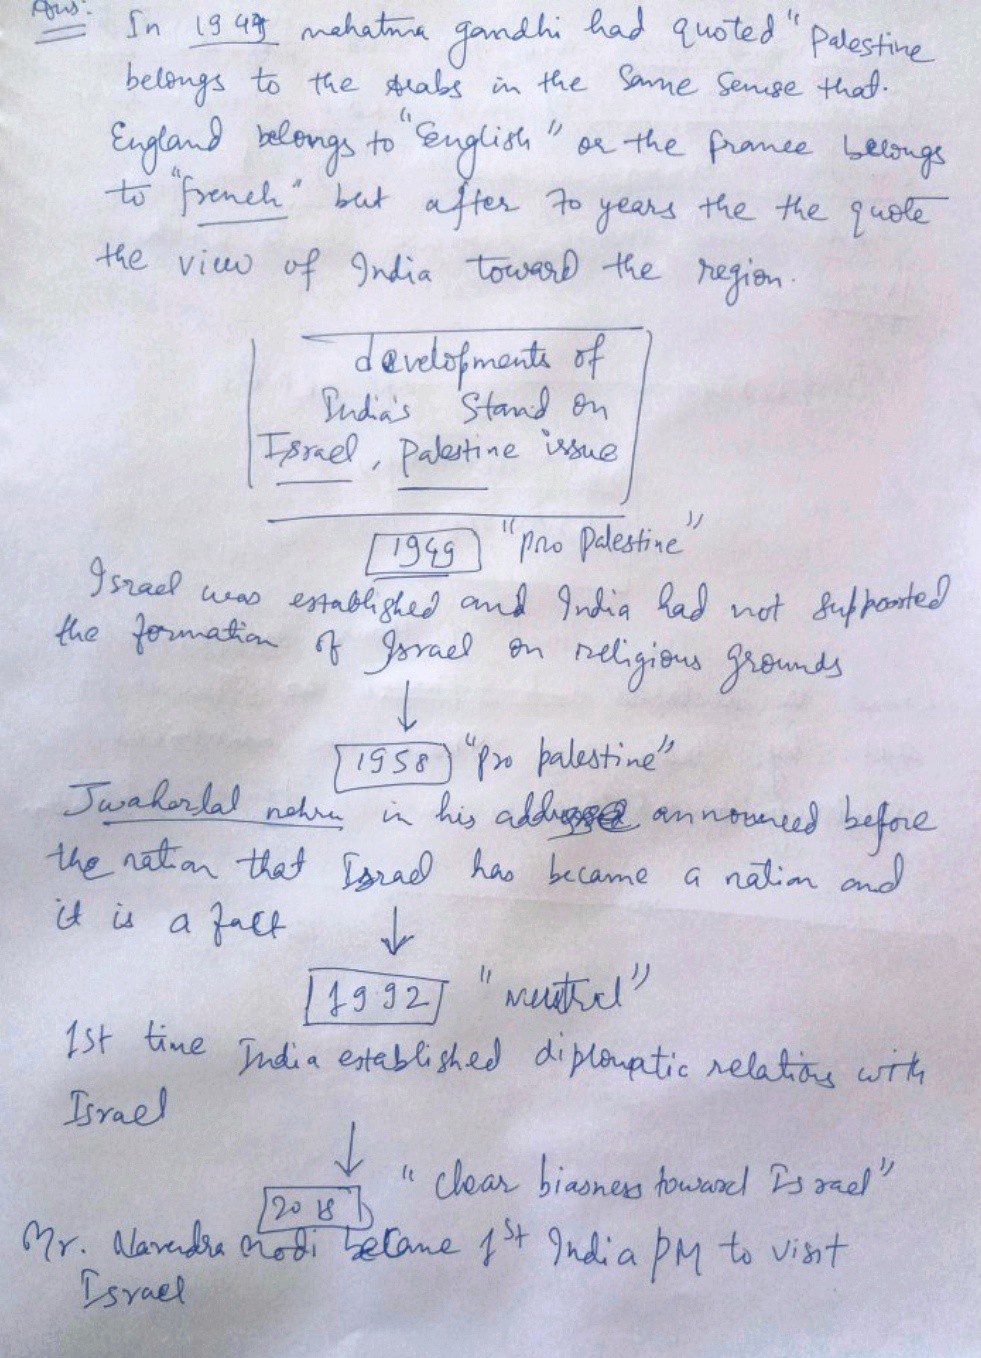 Ans:
In 1949 mahatma gandhi had quoted "Palestine
belongs to the Arabs in the Same Sense that.
England belongs to "English" or the france belongs
to "french" but after 70 years the the quote
the view of India toward the region.
developments of
India's Stand on
Israel, Palestine issue
1949 "pro Palestine"
Israel was established and India had not supported
the formation of Israel on religious grounds
1958 "pro palestine"
Jwaharlal nehru in his announced before
the nation that Israel has became a nation and
it is a fact
1992 "neutral"
1st time India established diplomatic relations with
Israel
2018 "clear biasness toward Israel"
Mr. Narendra modi became 1st India PM to visit
Israel